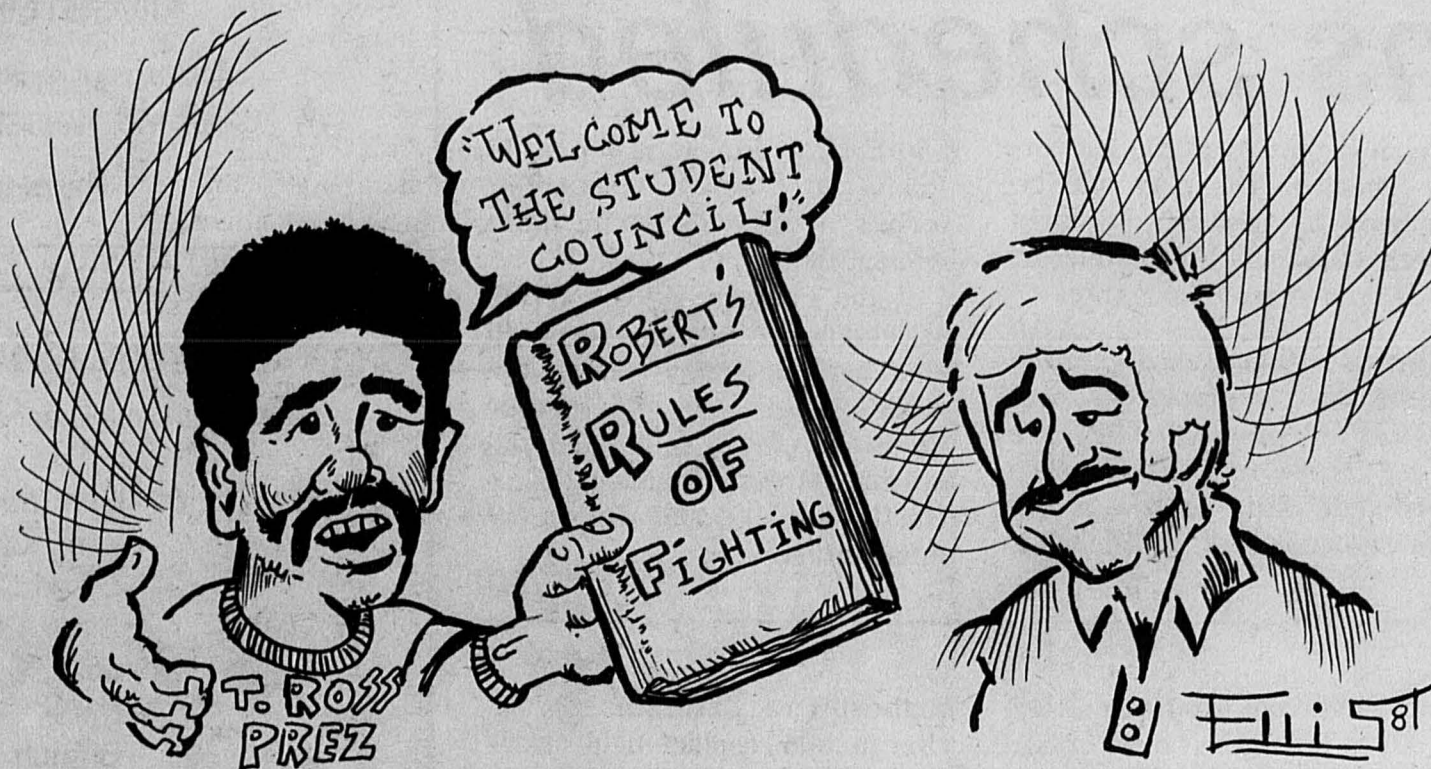 "WELCOME TO
THE STUDENT
COUNCIL!"
ROBERT'S
RULES
OF
FIGHTING
T. ROSS
PREZ
Ellis 81